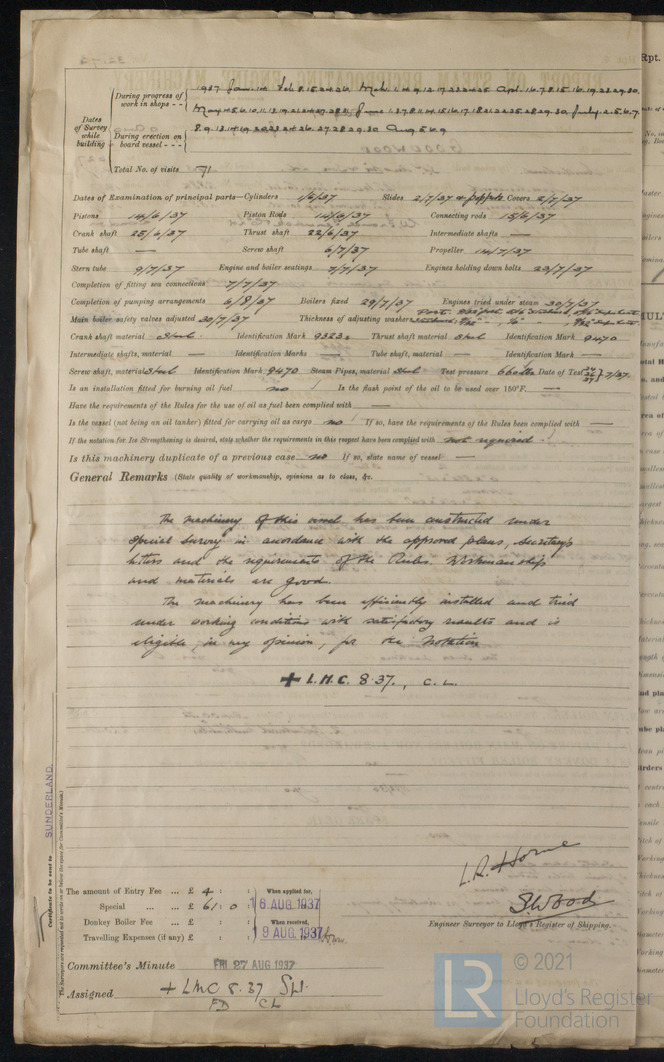 Rpt.
Dates of Survey while building
During progress of work in shops - -
1937 Jan. 14 Feb. 8.15.24.26. Mch. 1.4.9.12.17.23.24.25 Apl. 16.19.23.29.30.
During erection on board vessel - - -
8.9.13.14.19.20.23.24.26.27.28.29.30 Aug. 5.6.9
Total No. of visits 71
Dates of Examination of principal parts—Cylinders 1/6/37 Slides 2/7/37 Covers 2/7/37
Pistons 14/6/37 Piston Rods 14/6/37 Connecting rods 15/6/37
Crank shaft 25/6/37 Thrust shaft 22/6/37 Intermediate shafts —
Tube shaft — Screw shaft 6/7/37 Propeller 14/7/37
Stern tube 9/7/37 Engine and boiler seatings 7/7/37 Engines holding down bolts 29/7/37
Completion of fitting sea connections 7/7/37
Completion of pumping arrangements 6/8/37 Boilers fixed 29/7/37 Engines tried under steam 30/7/37
Main boiler safety valves adjusted 30/7/37 Thickness of adjusting washers
Crank shaft material Steel Identification Mark 9323 Thrust shaft material Steel Identification Mark 9470
Intermediate shafts, material — Identification Marks — Tube shaft, material — Identification Mark —
Screw shaft, material Steel Identification Mark 9470 Steam Pipes, material Steel Test pressure 660 lbs. Date of Test 7/37
Is an installation fitted for burning oil fuel no Is the flash point of the oil to be used over 150°F. —
Have the requirements of the Rules for the use of oil as fuel been complied with —
Is the vessel (not being an oil tanker) fitted for carrying oil as cargo no If so, have the requirements of the Rules been complied with —
If the notation for Ice Strengthening is desired, state whether the requirements in this respect have been complied with not required.
Is this machinery duplicate of a previous case no If so, state name of vessel —
General Remarks (State quality of workmanship, opinions as to class, &c.
The machinery of this vessel has been constructed under
special survey in accordance with the approved plans, Secretary's
letters and the requirements of the Rules. Workmanship
and materials are good.
The machinery has been efficiently installed and tried
under working conditions with satisfactory results and is
eligible, in my opinion, for the notation
+ L.M.C. 8.37., C.L.
Certificate to be sent to SUNDERLAND.
(The Surveyors are requested not to write on or below the space for Committee's Minute.)
L.R. Horne
The amount of Entry Fee ... £ 4 : :
Special ... ... £ 61 : 0 :
Donkey Boiler Fee ... £ : :
Travelling Expenses (if any) £ : :
When applied for,
16 AUG. 1937
When received,
19 AUG. 1937
S. Wood
Engineer Surveyor to Lloyd's Register of Shipping.
Committee's Minute FRI 27 AUG 1937
Assigned + LMC 8.37
FD CL
LR
© 2021
Lloyd's Register
Foundation